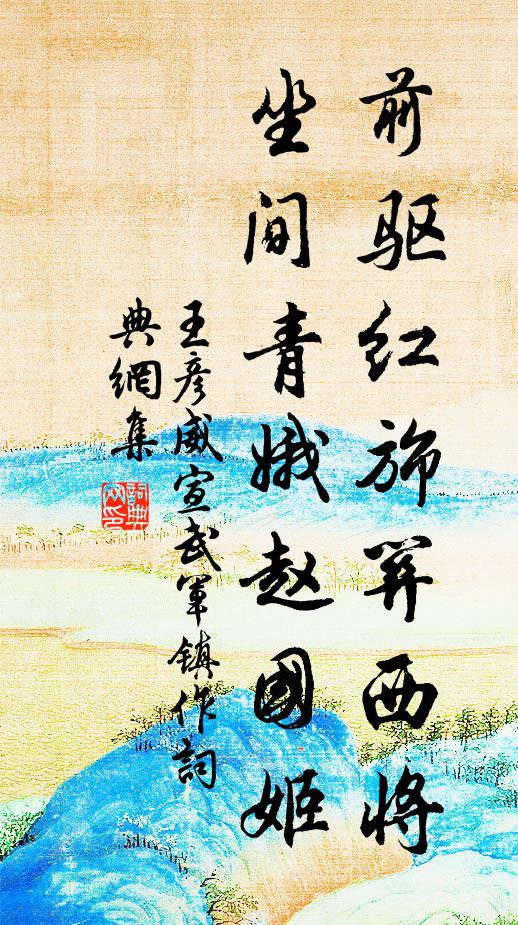 前驱红旆关西将
坐间青娥赵國姬
王彦威宣武軍镇作詞
典網集
詞典网印